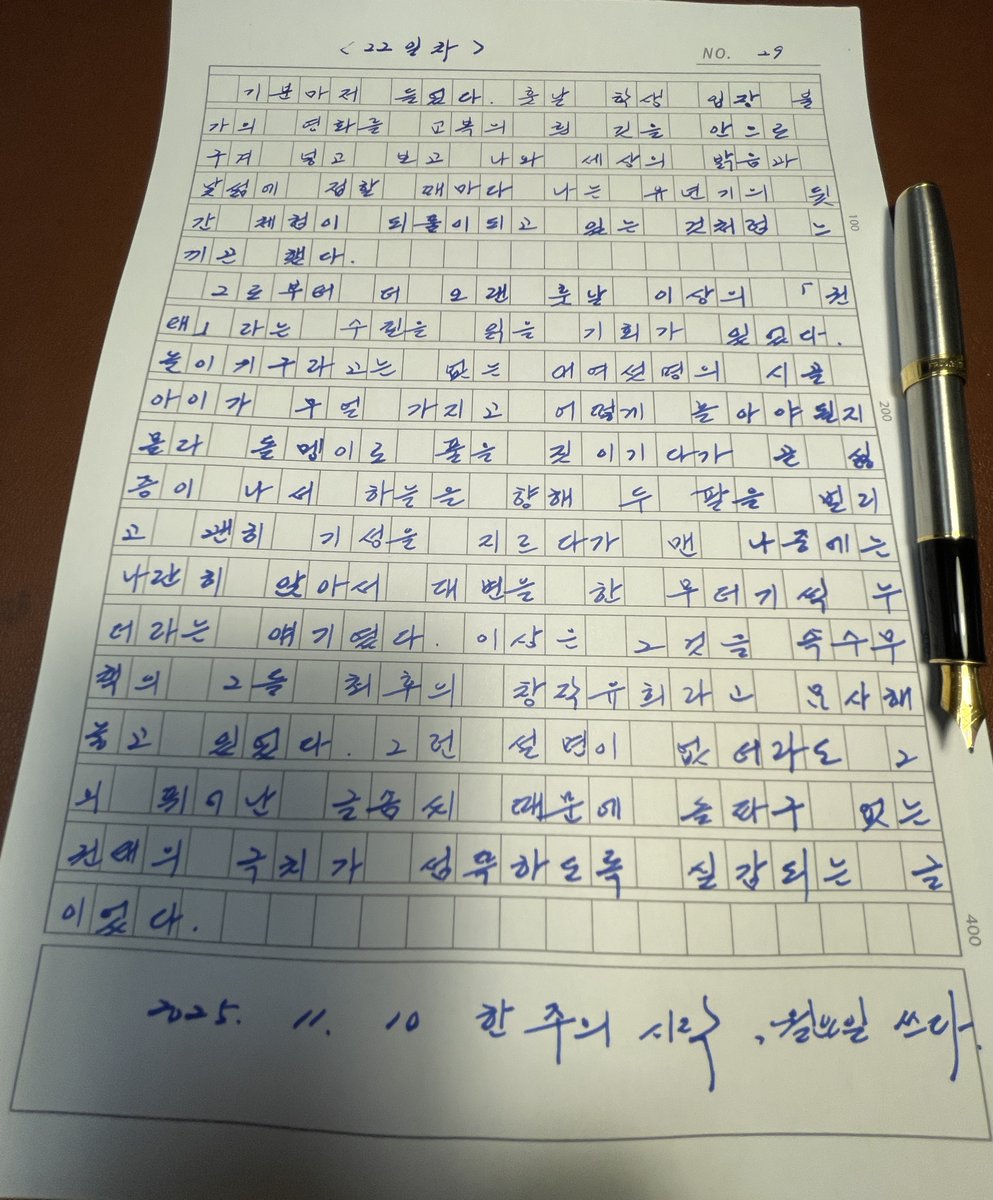 <22일차>
NO. 29
기분마저 들었다. 훗날 학생 입장 불
가의 영화를 교복의 흰 깃을 안으로
구겨 넣고 보고 나와 세상의 밝음과
낯섦에 접할 때마다 나는 유년기의 뒷
간 체험이 되풀이되고 있는 것처럼 느
끼곤 했다.
그로부터 더 오랜 훗날 이상의 「권
태」라는 수필을 읽을 기회가 있었다.
놀이기구라고는 없는 대여섯명의 시골
아이가 무얼 가지고 어떻게 놀아야 될지
몰라 돌멩이로 풀을 짓이기다가 곧 싫
증이 나서 하늘을 향해 두 팔을 벌리
고 괜히 기성을 지르다가 맨 나중에는
나란히 앉아서 대변을 한 무더기씩 누
더라는 얘기였다. 이상은 그것을 속수무
책의 그들 최후의 창작유희라고 묘사해
놓고 있었다. 그런 설명이 없더라도 그
의 뛰어난 글솜씨 때문에 돌파구 없는
권태의 극치가 섬뜩하도록 실감되는 글
이었다.
100
200
400
2025. 11. 10 한 주의 시작, 월요일 쓰다.